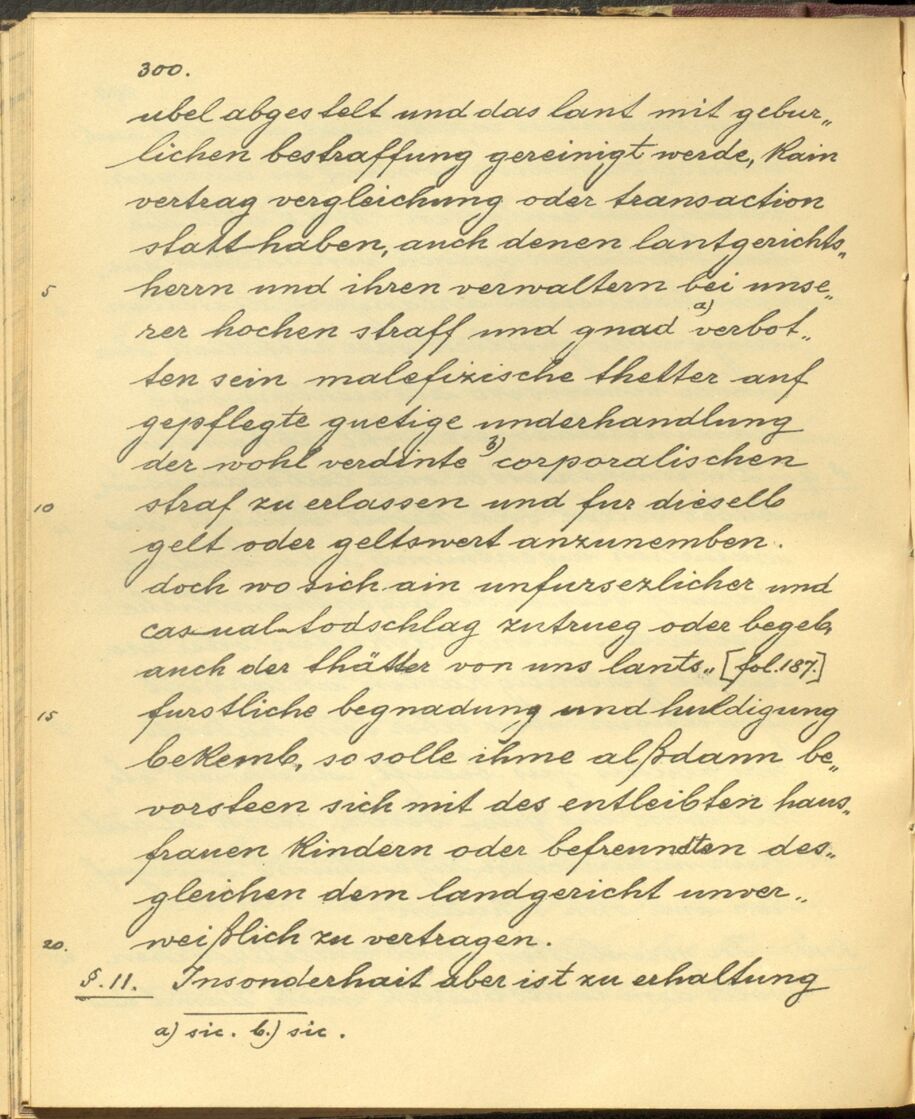 300.
ubel abgestelt und das lant mit gebur„
lichen bestraffung gereinigt werde, kain
vertrag vergleichung oder transaction
statt haben, auch denen lantgerichts„
5 herrn und ihren verwaltern bei unse„
rer hochen straff und gnad a) verbot„
ten sein malefizische thetter auf
gepflegte guetige underhandlung
der wohl verdinte b) corporalischen
10 straf zu erlassen und fur dieselb
gelt oder geltswert anzunemben.
doch wo sich ain unfursezlicher und
casual-todschlag zutrueg oder begeb,
auch der thätter von uns lants„ [fol. 187.]
15 furstliche begnadung und huldigung
bekemb, so solle ihme alßdann be„
vorsteen sich mit des entleibten haus„
frauen kindern oder befreundten des„
gleichen dem landgericht unver„
20. weißlich zu vertragen.
§. 11. Insonderhait aber ist zu erhaltung
a) sic. b.) sic.